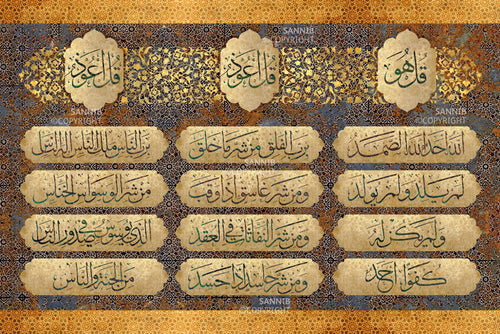 SANNIB
©COPYRIGHT
قل هو
الله احد الله الصمد
لم يلد ولم يولد
ولم يكن له
كفوا احد
قل اعوذ
برب الفلق من شر ما خلق
ومن شر غاسق اذا وقب
ومن شر النفاثات في العقد
ومن شر حاسد اذا حسد
قل اعوذ
برب الناس ملك الناس اله الناس
من شر الوسواس الخناس
الذي يوسوس في صدور الناس
من الجنة والناس
SANNIB
©COPYRIGHT
SANNIB
©COPYRIGHT
SANNIB
©COPYRIGHT